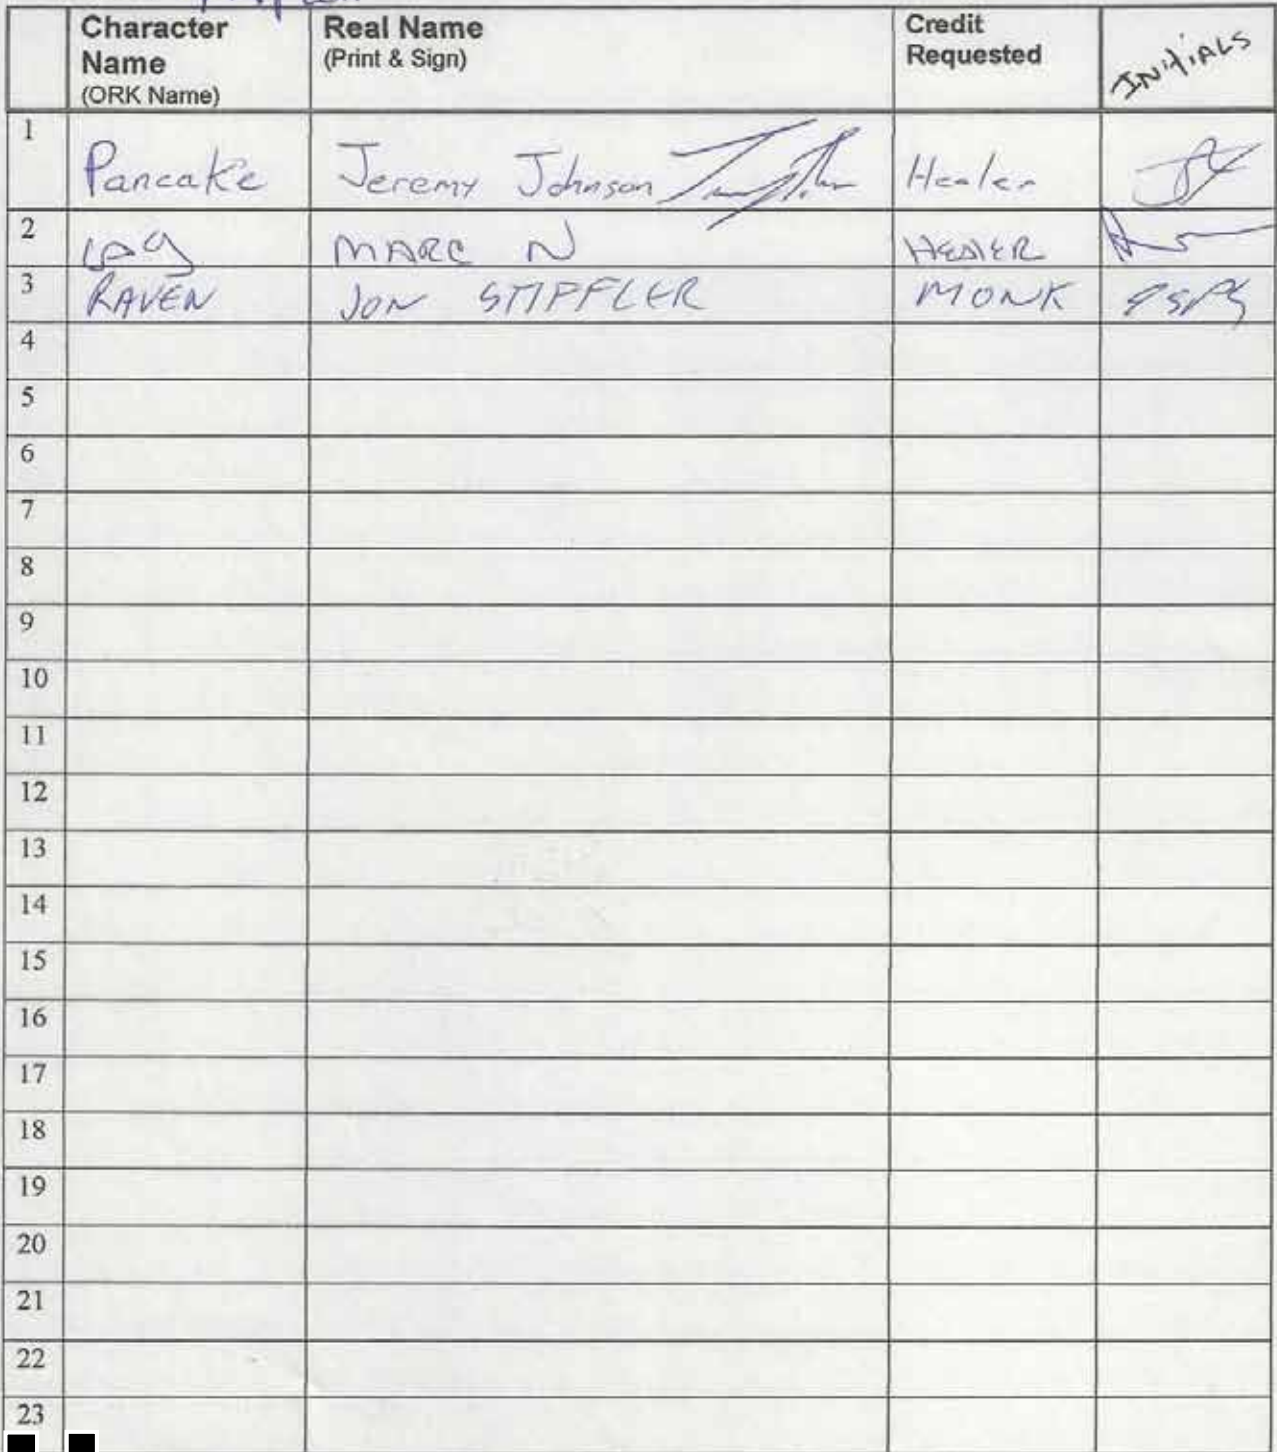 Character Name (ORK Name) Real Name (Print & Sign) Credit Requested INITIALS
1 Pancake Jeremy Johnson Healer
2 MARC N HEALER
3 RAVEN JON STIFFLER MONK
4
5
6
7
8
9
10
11
12
13
14
15
16
17
18
19
20
21
22
23